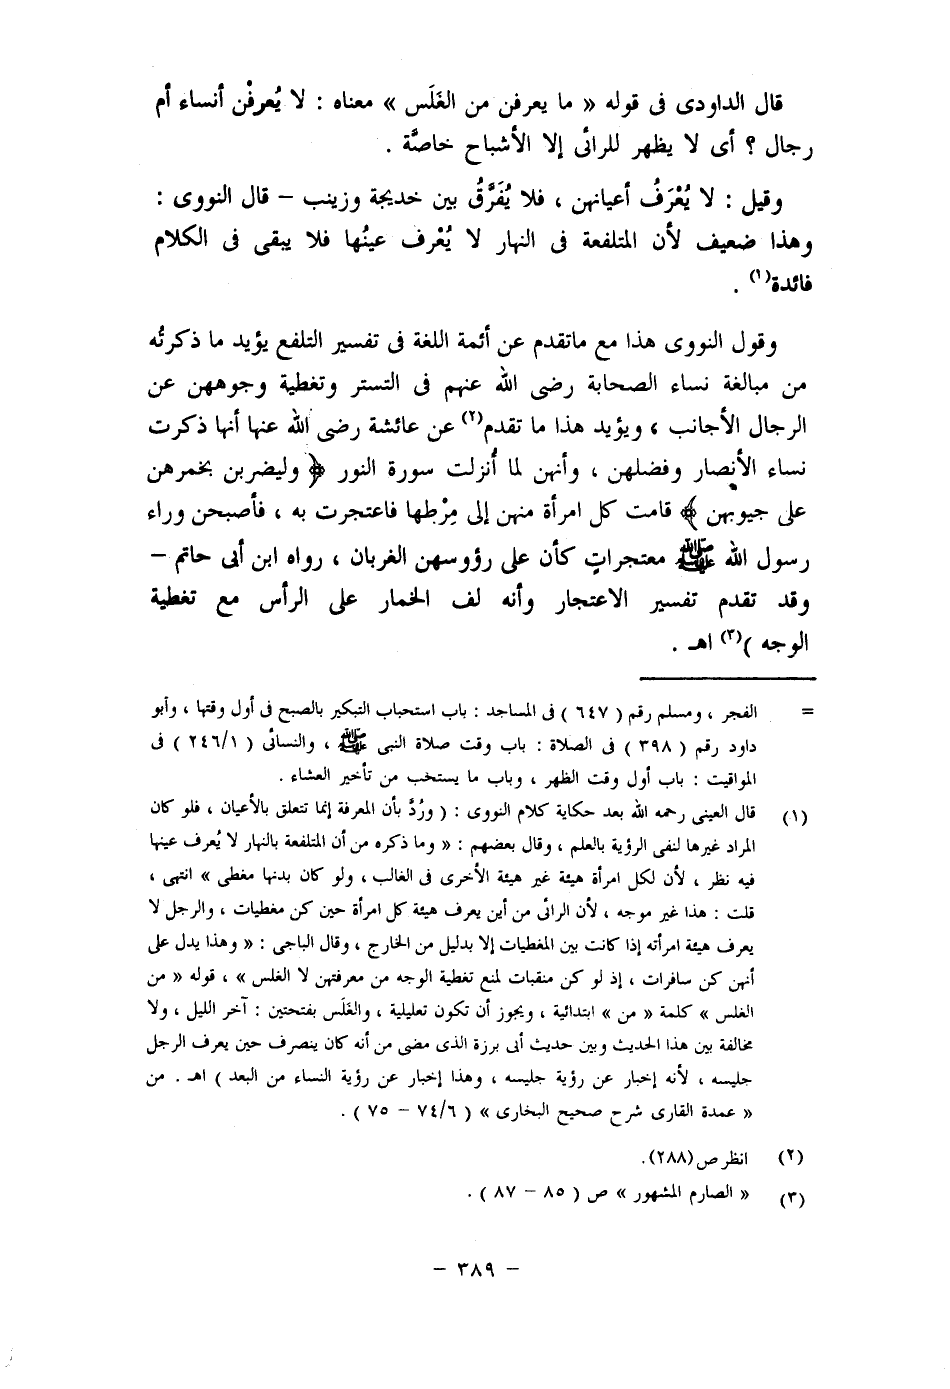 قال الداودى فى قوله « ما يعرفن من الغَلَس » معناه : لا يُعرفْن أنساء أم
رجال ؟ أى لا يظهر للرائى إلا الأشباح خاصَّة .
وقيل : لا يُعْرَفُ أعيانهن ، فلا يُفَرَّقُ بين خديجة وزينب – قال النووى :
وهذا ضعيف لأن المتلفعة فى النهار لا يُعْرف عينُها فلا يبقى فى الكلام
فائدة(١) .
وقول النووى هذا مع ماتقدم عن أئمة اللغة فى تفسير التلفع يؤيد ما ذكرتُه
من مبالغة نساء الصحابة رضى الله عنهم فى التستر وتغطية وجوههن عن
الرجال الأجانب ، ويؤيد هذا ما تقدم(٢) عن عائشة رضى الله عنها أنها ذكرت
نساء الأنصار وفضلهن ، وأنهن لما أُنزلت سورة النور ﴿ وليضربن بخمرهن
على جيوبهن ﴾ قامت كل امرأة منهن إلى مِرْطها فاعتجرت به ، فأصبحن وراء
رسول الله ﷺ معتجراتٍ كأن على رؤوسهن الغربان ، رواه ابن أبى حاتم –
وقد تقدم تفسير الاعتجار وأنه لف الخمار على الرأس مع تغطية
الوجه )(٣) اهـ .
= الفجر ، ومسلم رقم ( ٦٤٧ ) فى المساجد : باب استحباب التبكير بالصبح فى أول وقتها ، وأبو
داود رقم ( ٣٩٨ ) فى الصلاة : باب وقت صلاة النبى ﷺ ، والنسائى ( ٢٤٦/١ ) فى
المواقيت : باب أول وقت الظهر ، وباب ما يستحب من تأخير العشاء .
(١) قال العينى رحمه الله بعد حكاية كلام النووى : ( ورُدَّ بأن المعرفة إنما تتعلق بالأعيان ، فلو كان
المراد غيرها لنفى الرؤية بالعلم ، وقال بعضهم : « وما ذكره من أن المتلفعة بالنهار لا يُعرف عينها
فيه نظر ، لأن لكل امرأة هيئة غير هيئة الأخرى فى الغالب ، ولو كان بدنها مغطى » انتهى ،
قلت : هذا غير موجه ، لأن الرائى من أين يعرف هيئة كل امرأة حين كن مغطيات ، والرجل لا
يعرف هيئة امرأته إذا كانت بين المغطيات إلا بدليل من الخارج ، وقال الباجى : « وهذا يدل على
أنهن كن سافرات ، إذ لو كن منقبات لمنع تغطية الوجه من معرفتهن لا الغلس » ، قوله « من
الغلس » كلمة « من » ابتدائية ، ويجوز أن تكون تعليلية ، والغَلَس بفتحتين : آخر الليل ، ولا
مخالفة بين هذا الحديث وبين حديث أبى برزة الذى مضى من أنه كان ينصرف حين يعرف الرجل
جليسه ، لأنه إخبار عن رؤية جليسه ، وهذا إخبار عن رؤية النساء من البعد ) اهـ . من
« عمدة القارى شرح صحيح البخارى » ( ٧٤/٦ – ٧٥ ) .
(٢) انظر ص (٢٨٨).
(٣) « الصارم المشهور » ص ( ٨٥ – ٨٧ ) .
– ٣٨٩ –